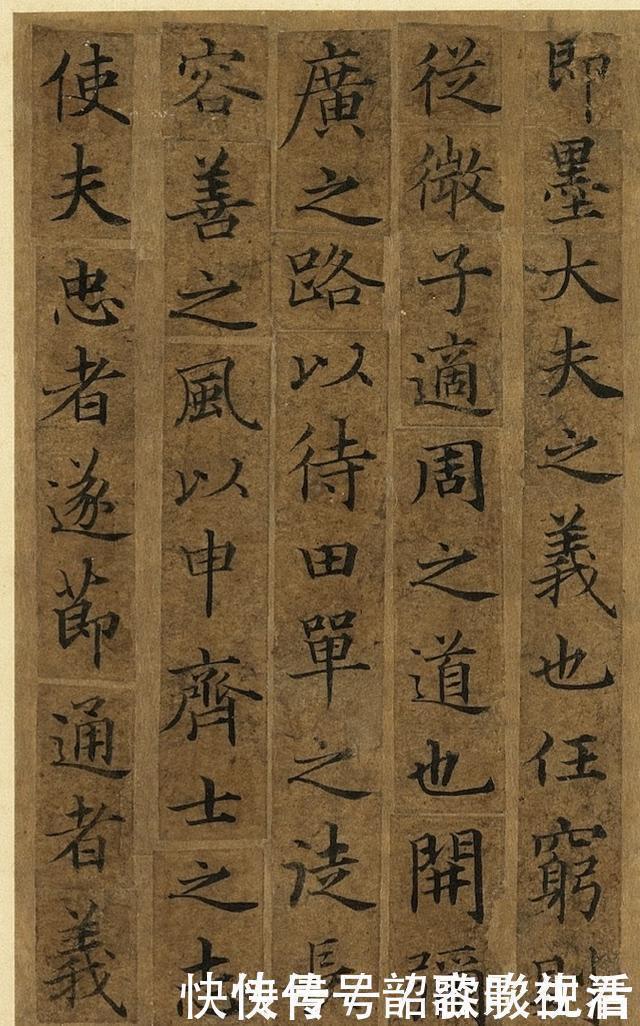 即墨大夫之義也任窮則
從微子適周之道也開彌
廣之路以待田單之徒長
容善之風以申齊士之志
使夫忠者遂莭通者義
快传号